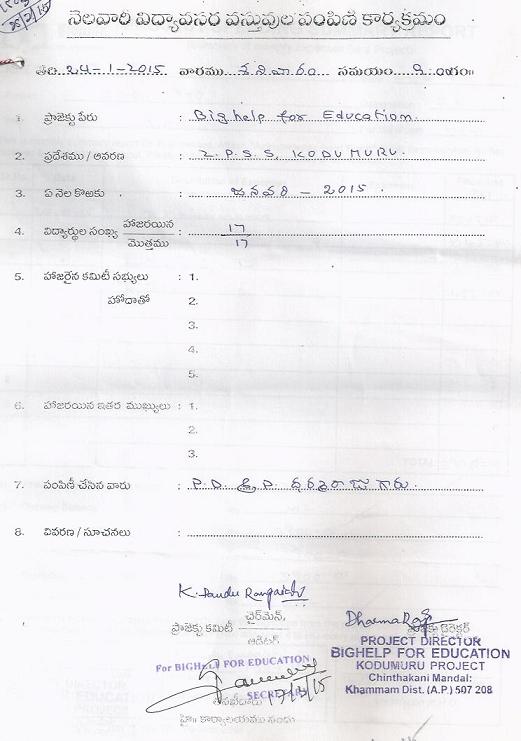 నెలవారి విద్యావసర వస్తువుల పంపిణి కార్యక్రమం
తేది 24-1-2015 వారము శనివారం సమయం
1. ప్రాజెక్టు పేరు : Bighelp for Education
2. ప్రదేశము / ఆవరణ : Z.P.S.S, KODUMURU.
3. ఏ నెల కొఱకు : జనవరి - 2015.
4. విద్యార్థుల సంఖ్య హాజరయిన : 17
మొత్తము 17
5. హాజరైన కమిటీ సభ్యులు : 1.
హోదాతో 2.
3.
4.
5.
6. హాజరయిన ఇతర ముఖ్యులు : 1.
2.
3.
7. పంపిణీ చేసిన వారు : P.D. ధర్మరాజు గారు.
8. వివరణ / సూచనలు :
K. Pandu Rangaiah
ప్రాజెక్టు కమిటీ చైర్‌మేన్,
ఆడిటర్
DharmaRaju
ప్రాజెక్టు డైరెక్టర్
PROJECT DIRECTOR
BIGHELP FOR EDUCATION
KODUMURU PROJECT
Chinthakani Mandal:
Khammam Dist. (A.P.) 507 208
For BIGHELP FOR EDUCATION
SECRETARY
హై॥ కార్యాలయము నందు